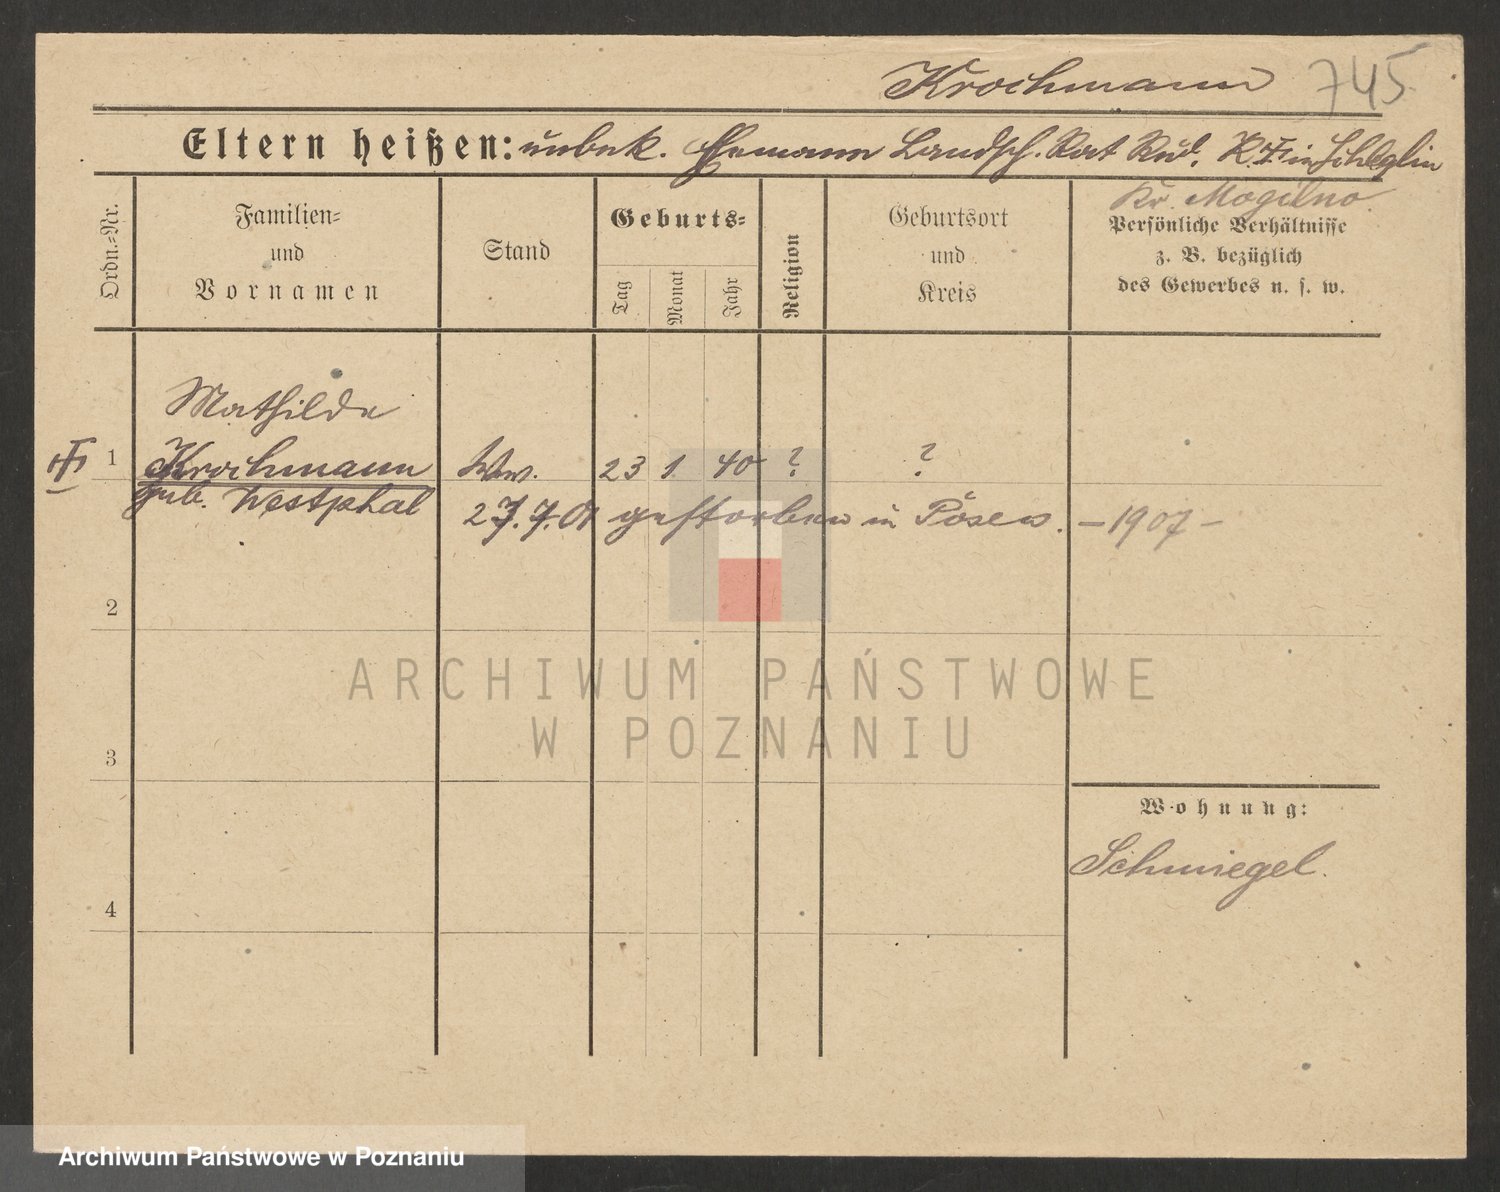 Krochmann 745
Eltern heißen: unbek. Ehemann Landsch. Rat Rud. K. in
Kr. Mogilno.
Ordn.-Nr.
Familien-
und
Vornamen
Stand
Geburts-
Tag
Monat
Jahr
Religion
Geburtsort
und
Kreis
Persönliche Verhältnisse
z. B. bezüglich
des Gewerbes u. s. w.
Mathilde
1 Krochmann Ww. 23 1 40 ? ?
geb. Westphal
27.7.01 gestorben in Posen. – 1907 –
2
ARCHIWUM PAŃSTWOWE
W POZNANIU
3
Wohnung:
Schmiegel.
4
Archiwum Państwowe w Poznaniu